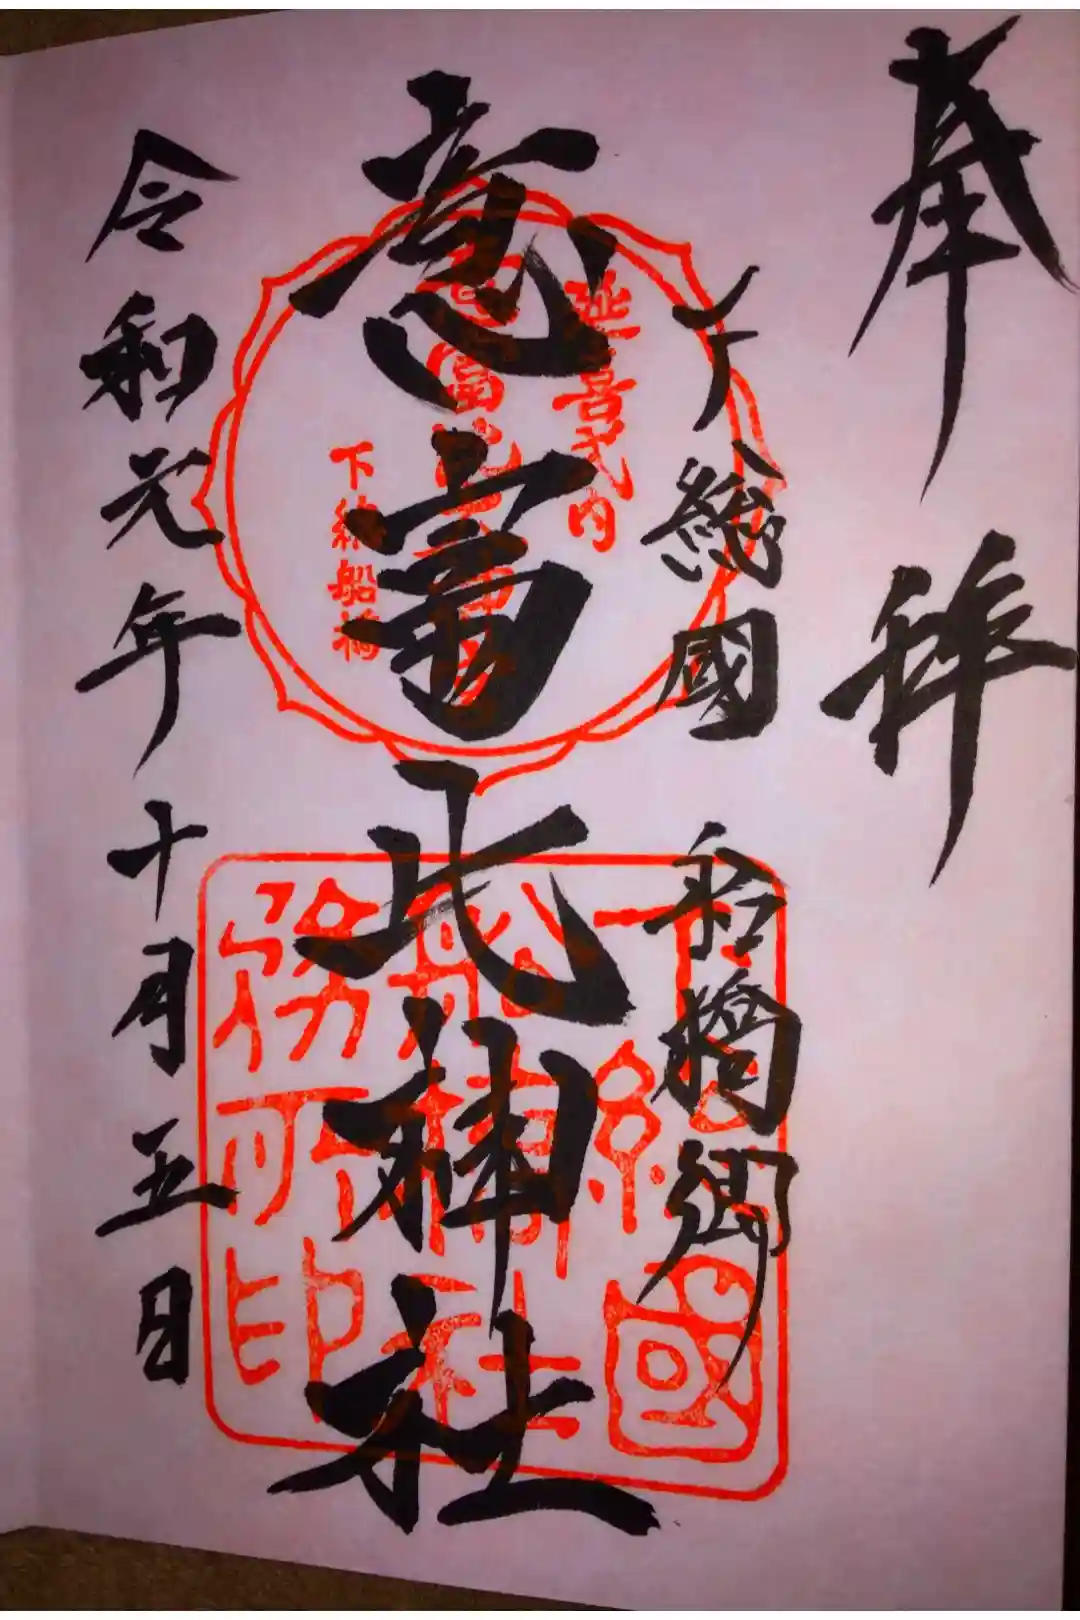 奉拝
下総國 船橋郷
意富比神社
令和元年十月五日
延喜式内
意富比神社
下総船橋
下総國
船橋社
務所印